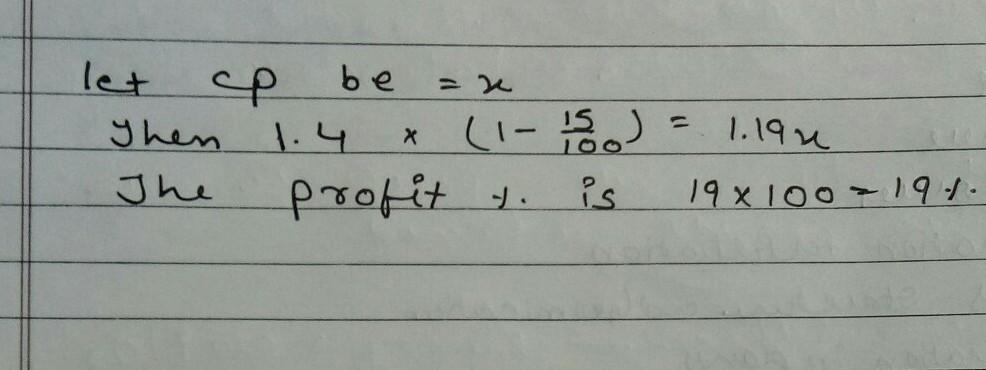 let cp be = x
Then 1.4 x (1 - 15/100) = 1.19x
The profit % is 19 x 100 = 19%.